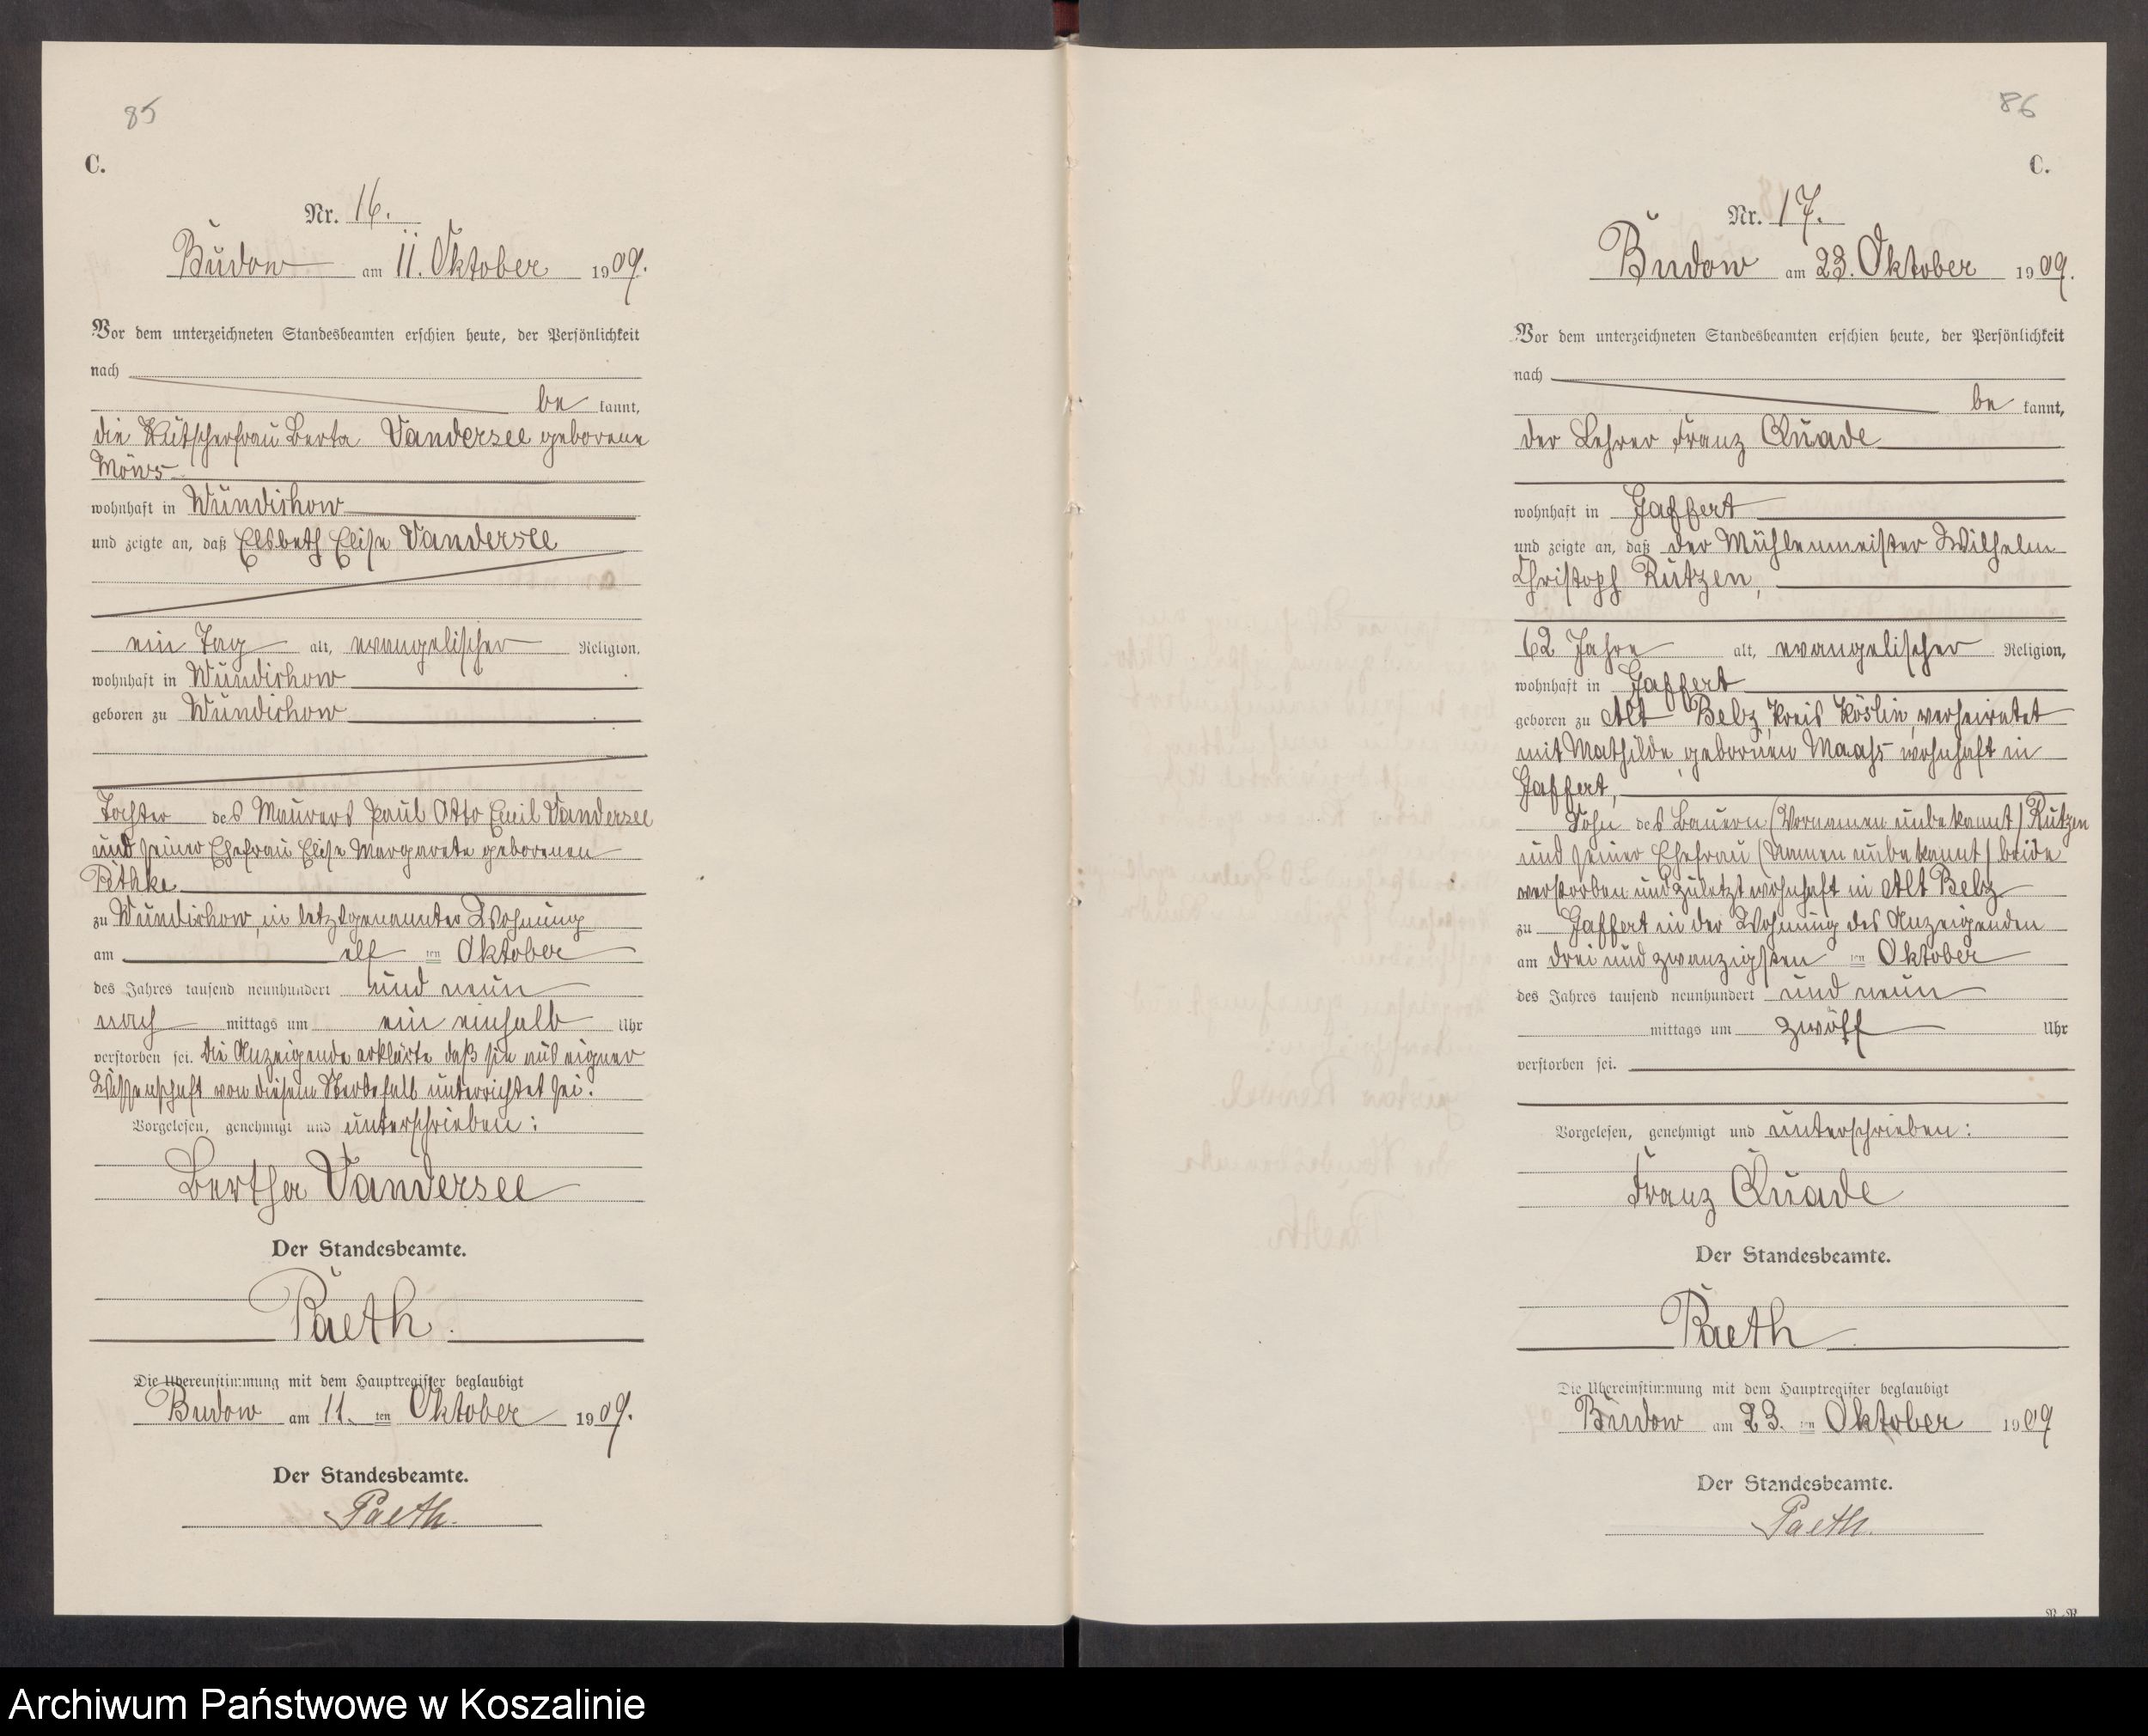 85
C.
Nr. 16.
Budow am 11. Oktober 1909.
Vor dem unterzeichneten Standesbeamten erschien heute, der Persönlichkeit
nach
be kannt,
die Kutscherfrau Berta Vandersee geborene
Möws
wohnhaft in Wundichow
und zeigte an, daß Elsbeth Elise Vandersee
ein Tag alt, evangelischer Religion,
wohnhaft in Wundichow
geboren zu Wundichow
Tochter des Maurers Paul Otto Emil Vandersee
und seiner Ehefrau Elise Margarete geborenen
Pithke
zu Wundichow, in letztgenannter Wohnung
am elf ten Oktober
des Jahres tausend neunhundert und neun
nach mittags um ein einhalb Uhr
verstorben sei. Die Anzeigende erklärte daß sie aus eigner
Wissenschaft von diesem Sterbefall unterrichtet sei.
Vorgelesen, genehmigt und unterschrieben:
Bertha Vandersee
Der Standesbeamte.
Paeth.
Die Übereinstimmung mit dem Hauptregister beglaubigt
Budow am 11. ten Oktober 1909.
Der Standesbeamte.
Paeth.
86
C.
Nr. 17.
Budow am 23. Oktober 1909.
Vor dem unterzeichneten Standesbeamten erschien heute, der Persönlichkeit
nach
be kannt,
der Lehrer Franz Quade
wohnhaft in Gaffert
und zeigte an, daß der Mühlenmeister Wilhelm
Christoph Rützen,
62 Jahre alt, evangelischer Religion,
wohnhaft in Gaffert
geboren zu Alt Belz, Kreis Köslin, verheiratet
mit Mathilde, gebornen Maaß wohnhaft in
Gaffert,
Sohn des Bauern (Vornamen unbekannt) Rützen
und seiner Ehefrau (Namen unbekannt) beide
verstorben und zuletzt wohnhaft in Alt Belz
zu Gaffert in der Wohnung des Anzeigenden
am drei und zwanzigsten ten Oktober
des Jahres tausend neunhundert und neun
mittags um zwölf Uhr
verstorben sei.
Vorgelesen, genehmigt und unterschrieben:
Franz Quade
Der Standesbeamte.
Paeth
Die Übereinstimmung mit dem Hauptregister beglaubigt
Budow am 23. ten Oktober 1909
Der Standesbeamte.
Paeth.
Archiwum Państwowe w Koszalinie